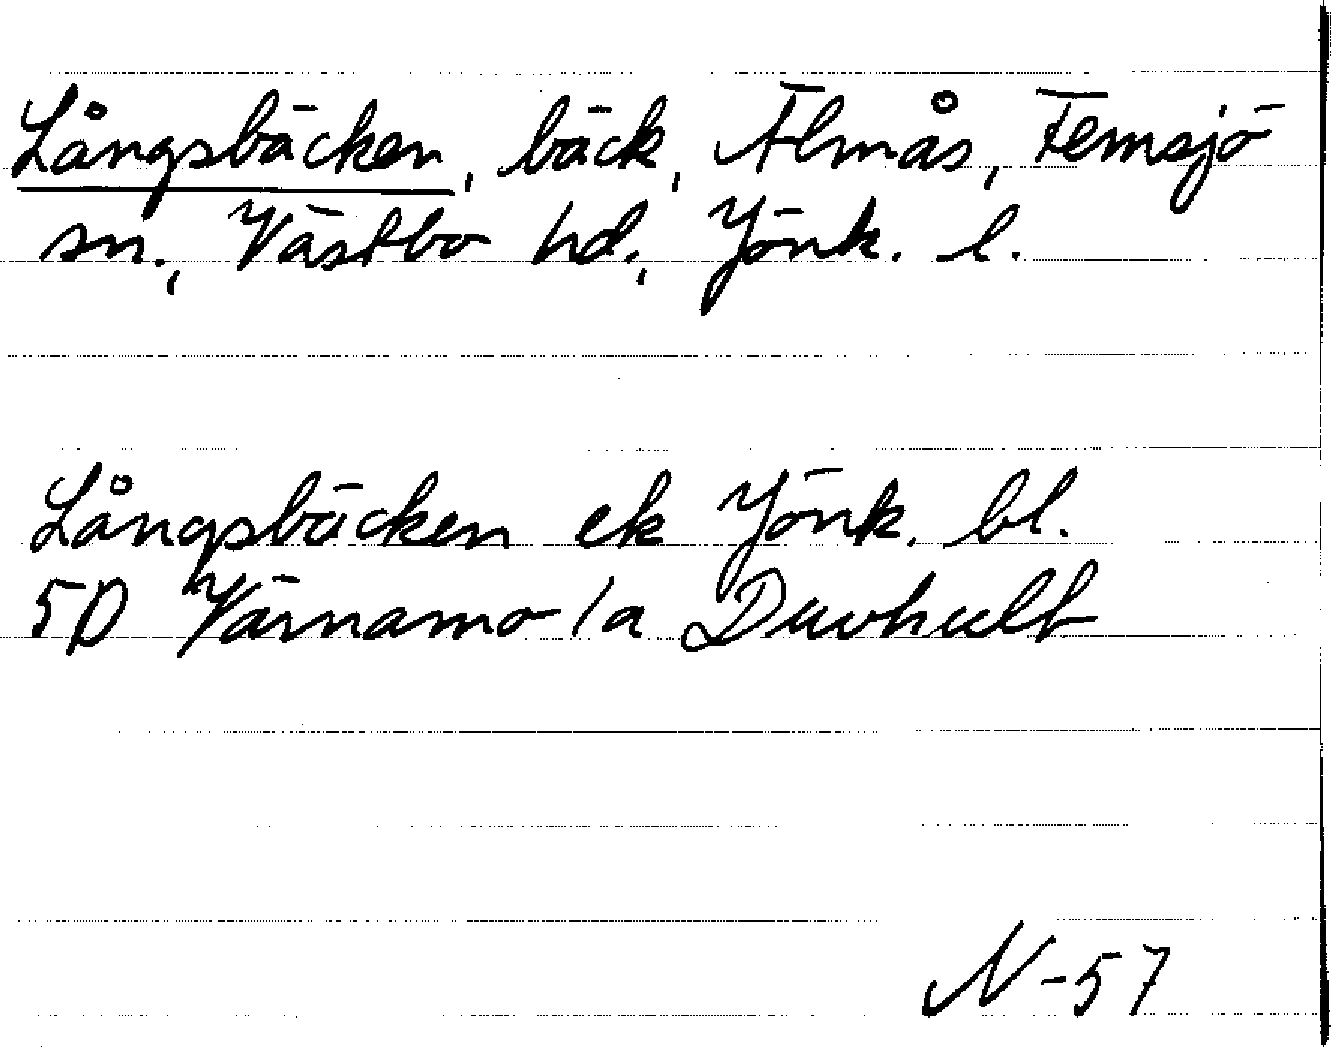 Långsbäcken, bäck, Älmås, Femsjö
sn., Västbo hd., Jönk. l.
Långsbäcken ek Jönk. bl.
5D Värnamo 1a Duvhult
N-57